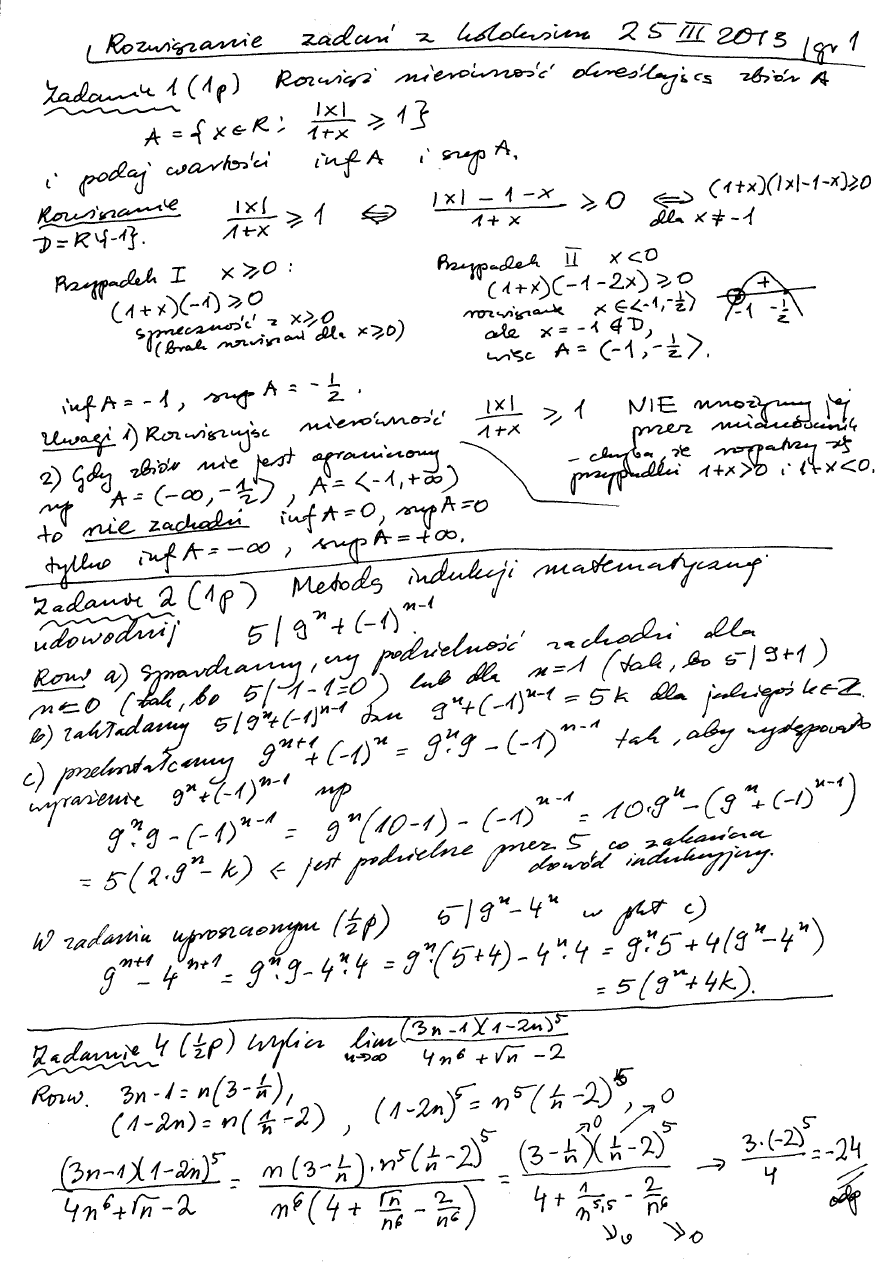 Rozwiązanie zadań z kolokwium 25 III 2013 /gr 1
Zadanie 1 (1p) Rozwiąż nierówność określającą zbiór A
A = { x ∈ R : |x|/(1+x) ⩾ 1 }
i podaj wartości inf A i sup A.
Rozwiązanie |x|/(1+x) ⩾ 1 ⇔ (|x| - 1 - x)/(1+x) ⩾ 0 ⇔ (1+x)(|x|-1-x) ⩾ 0
D = R\{-1}. dla x ≠ -1
Przypadek I x ⩾ 0 :
(1+x)(-1) ⩾ 0
sprzeczność z x ⩾ 0
(brak rozwiązań dla x ⩾ 0)
Przypadek II x < 0
(1+x)(-1-2x) ⩾ 0
rozwiązanie x ∈ <-1, -1/2>
ale x = -1 ∉ D,
więc A = (-1, -1/2>.
+ -1 -1/2
inf A = -1, sup A = -1/2.
Uwagi 1) Rozwiązując nierówność |x|/(1+x) ⩾ 1 NIE mnożymy jej
przez mianownik
- chyba, że rozpatrzy się
przypadki 1+x>0 i 1+x<0.
2) Gdy zbiór nie jest ograniczony
np A = (-∞, -1/2>, A = <-1, +∞)
to nie zachodzi inf A = 0, sup A = 0
tylko inf A = -∞, sup A = +∞.
Zadanie 2 (1p) Metodą indukcji matematycznej
udowodnij 5 | 9^n + (-1)^(n-1).
Rozw a) sprawdzamy, czy podzielność zachodzi dla
n = 0 (tak, bo 5 | 1-1=0) lub dla n=1 (tak, bo 5 | 9+1)
b) zakładamy 5 | 9^n + (-1)^(n-1) tzn 9^n + (-1)^(n-1) = 5k dla jakiegoś k ∈ Z.
c) przekształcamy 9^(n+1) + (-1)^n = 9^n · 9 - (-1)^(n-1) tak, aby występowało
wyrażenie 9^n + (-1)^(n-1) np
9^n · 9 - (-1)^(n-1) = 9^n (10-1) - (-1)^(n-1) = 10·9^n - (9^n + (-1)^(n-1))
= 5(2·9^n - k) ← jest podzielne przez 5, co zakańcza
dowód indukcyjny.
W zadaniu uproszczonym (1/2 p) 5 | 9^n - 4^n w pkt c)
9^(n+1) - 4^(n+1) = 9^n · 9 - 4^n · 4 = 9^n · (5+4) - 4^n · 4 = 9^n · 5 + 4(9^n - 4^n)
= 5(9^n + 4k).
Zadanie 4 (1/2 p) Wylicz lim n→∞ (3n-1)(1-2n)^5 / (4n^6 + √n - 2)
Rozw. 3n-1 = n(3 - 1/n),
(1-2n) = n(1/n - 2), (1-2n)^5 = n^5 (1/n - 2)^5, →0 →0
(3n-1)(1-2n)^5 / (4n^6 + √n - 2) = n(3 - 1/n) · n^5 (1/n - 2)^5 / (n^6 (4 + √n/n^6 - 2/n^6)) = (3 - 1/n)(1/n - 2)^5 / (4 + 1/n^5,5 - 2/n^6) → 3·(-2)^5 / 4 = -24
odp
↘0 ↘0